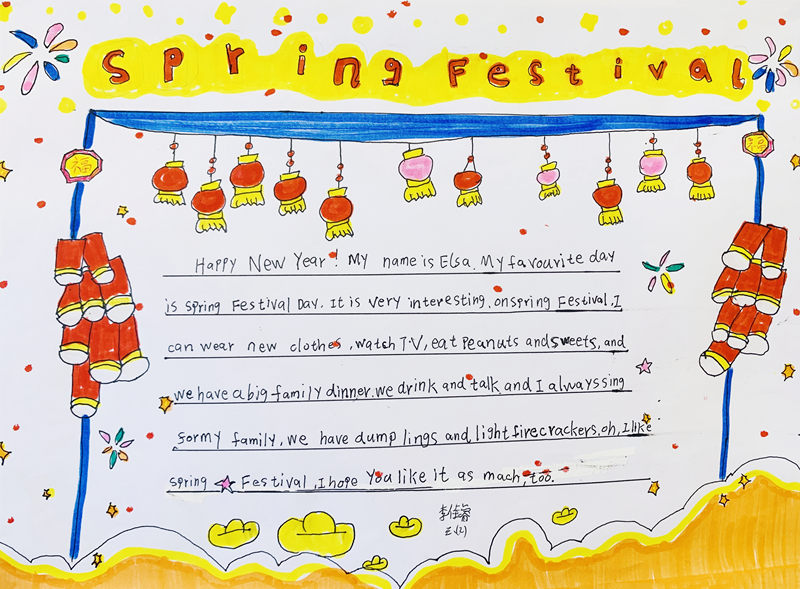 Spring Festival
福
福
Happy New Year! My name is Elsa. My favourite day
is spring Festival Day. It is very interesting. on spring Festival, I
can wear new clothes, watch T.V, eat peanuts and sweets, and
we have a big family dinner. we drink and talk and I always sing
for my family, we have dump lings and light firecrackers. oh, I like
spring Festival, I hope You like it as mach, too.
李佳睿
三(2)